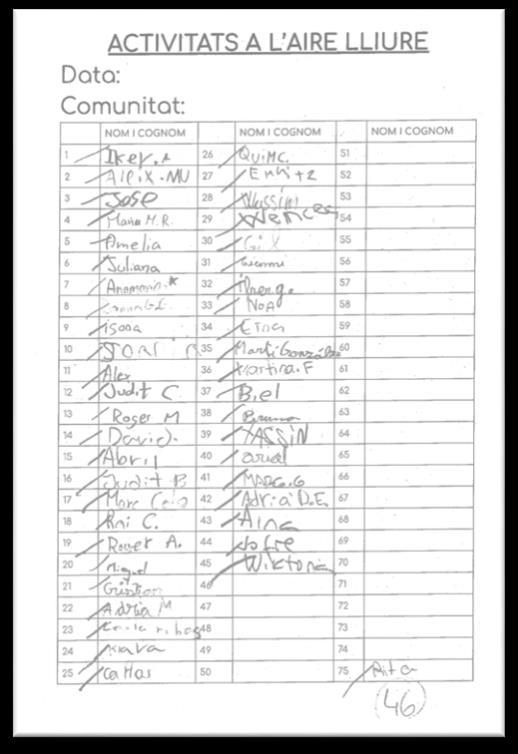 ACTIVITATS A L'AIRE LLIURE
Data:
Comunitat:
NOM I COGNOM NOM I COGNOM NOM I COGNOM
1 Iker.A 26 QUIMC. 51
2 Aleix.MU 27 Enritz 52
3 JOSE 28 Wassim 53
4 Maria M.R. 29 Wences 54
5 Amelia 30 55
6 Juliana 31 56
7 Anamaria.K 32 g. 57
8 33 NOA 58
9 isona 34 Etna 59
10 JORDI 35 Martí González 60
11 Alex 36 Martina.F 61
12 Judit C. 37 Biel 62
13 Roger M 38 Bruna 63
14 David. 39 YASSIN 64
15 Abril 40 65
16 Judit B 41 MARC.G 66
17 Marc 42 Adrià D.E. 67
18 C. 43 Aina 68
19 Roger A. 44 Jofre 69
20 Miquel 45 Wiktoria 70
21 46 71
22 Adrià M 47 72
23 48 73
24 49 74
25 50 75 Rita
46